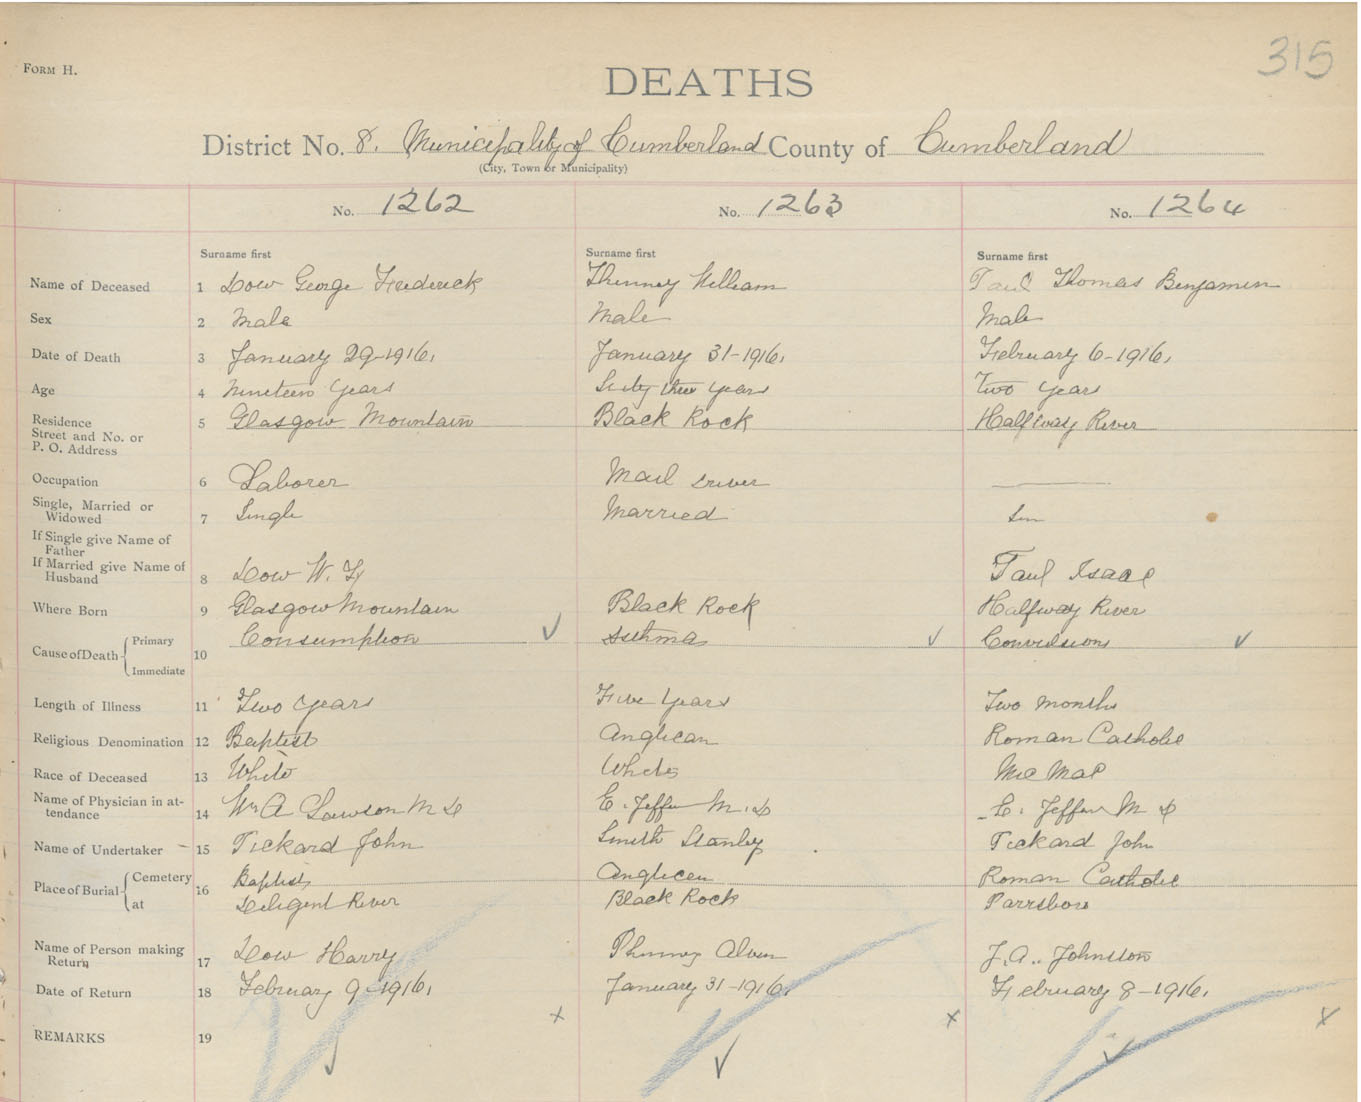 315
FORM H.
DEATHS
District No. 8. Municipality of Cumberland County of Cumberland
(City, Town or Municipality)
No. 1262 No. 1263 No. 1264
Surname first Surname first Surname first
Name of Deceased 1 Dow George Frederick Phinney William Paul Thomas Benjamin
Sex 2 Male Male Male
Date of Death 3 January 29-1916. January 31-1916. February 6-1916.
Age 4 Nineteen Years Sixty three years Two Years
Residence 5 Glasgow Mountain Black Rock Halfway River
Street and No. or
P. O. Address
Occupation 6 Laborer Mail Driver
Single, Married or
Widowed 7 Single Married Sin
If Single give Name of
Father
If Married give Name of
Husband 8 Dow W. Paul Isaac
Where Born 9 Glasgow Mountain Black Rock Halfway River
Cause of Death Primary 10 Consumption Asthma Convulsions
Immediate
Length of Illness 11 Two Years Five Years Two Months
Religious Denomination 12 Baptist Anglican Roman Catholic
Race of Deceased 13 White White Mic Mac
Name of Physician in at-
tendance 14 Wm A Lawson M D E. Jeffers M.D M D
Name of Undertaker 15 Pickard John Smith Stanley Pickard John
Place of Burial Cemetery 16 Baptist Anglican Roman Catholic
at Diligent River Black Rock Parrsboro
Name of Person making
Return 17 Dow Harry Phinney J. A. Johnston
Date of Return 18 February 9-1916. January 31-1916. February 8-1916.
REMARKS 19